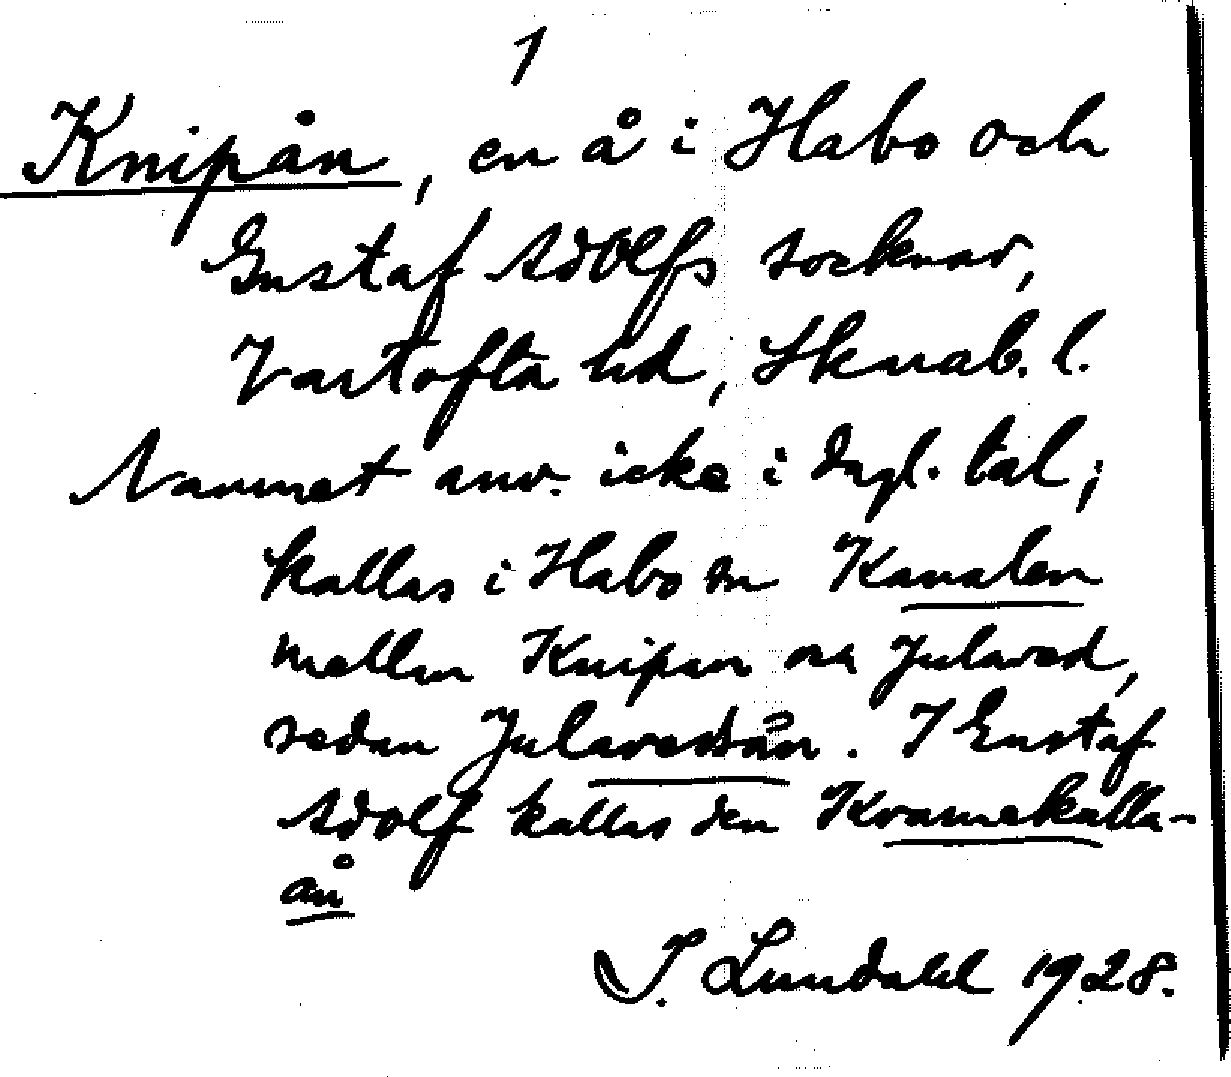 1
Knipån, en å i Habo och
Gustaf Adolfs socknar,
Vartofta hd, Skarab. l.
Namnet anv. icke i dagl. tal;
kallas i Habo sn Kanalen
mellan Knipan och Julared,
sedan Jularedsån. I Gustaf
Adolf kallas den Kramekalla-
ån
I. Lundahl 1928.